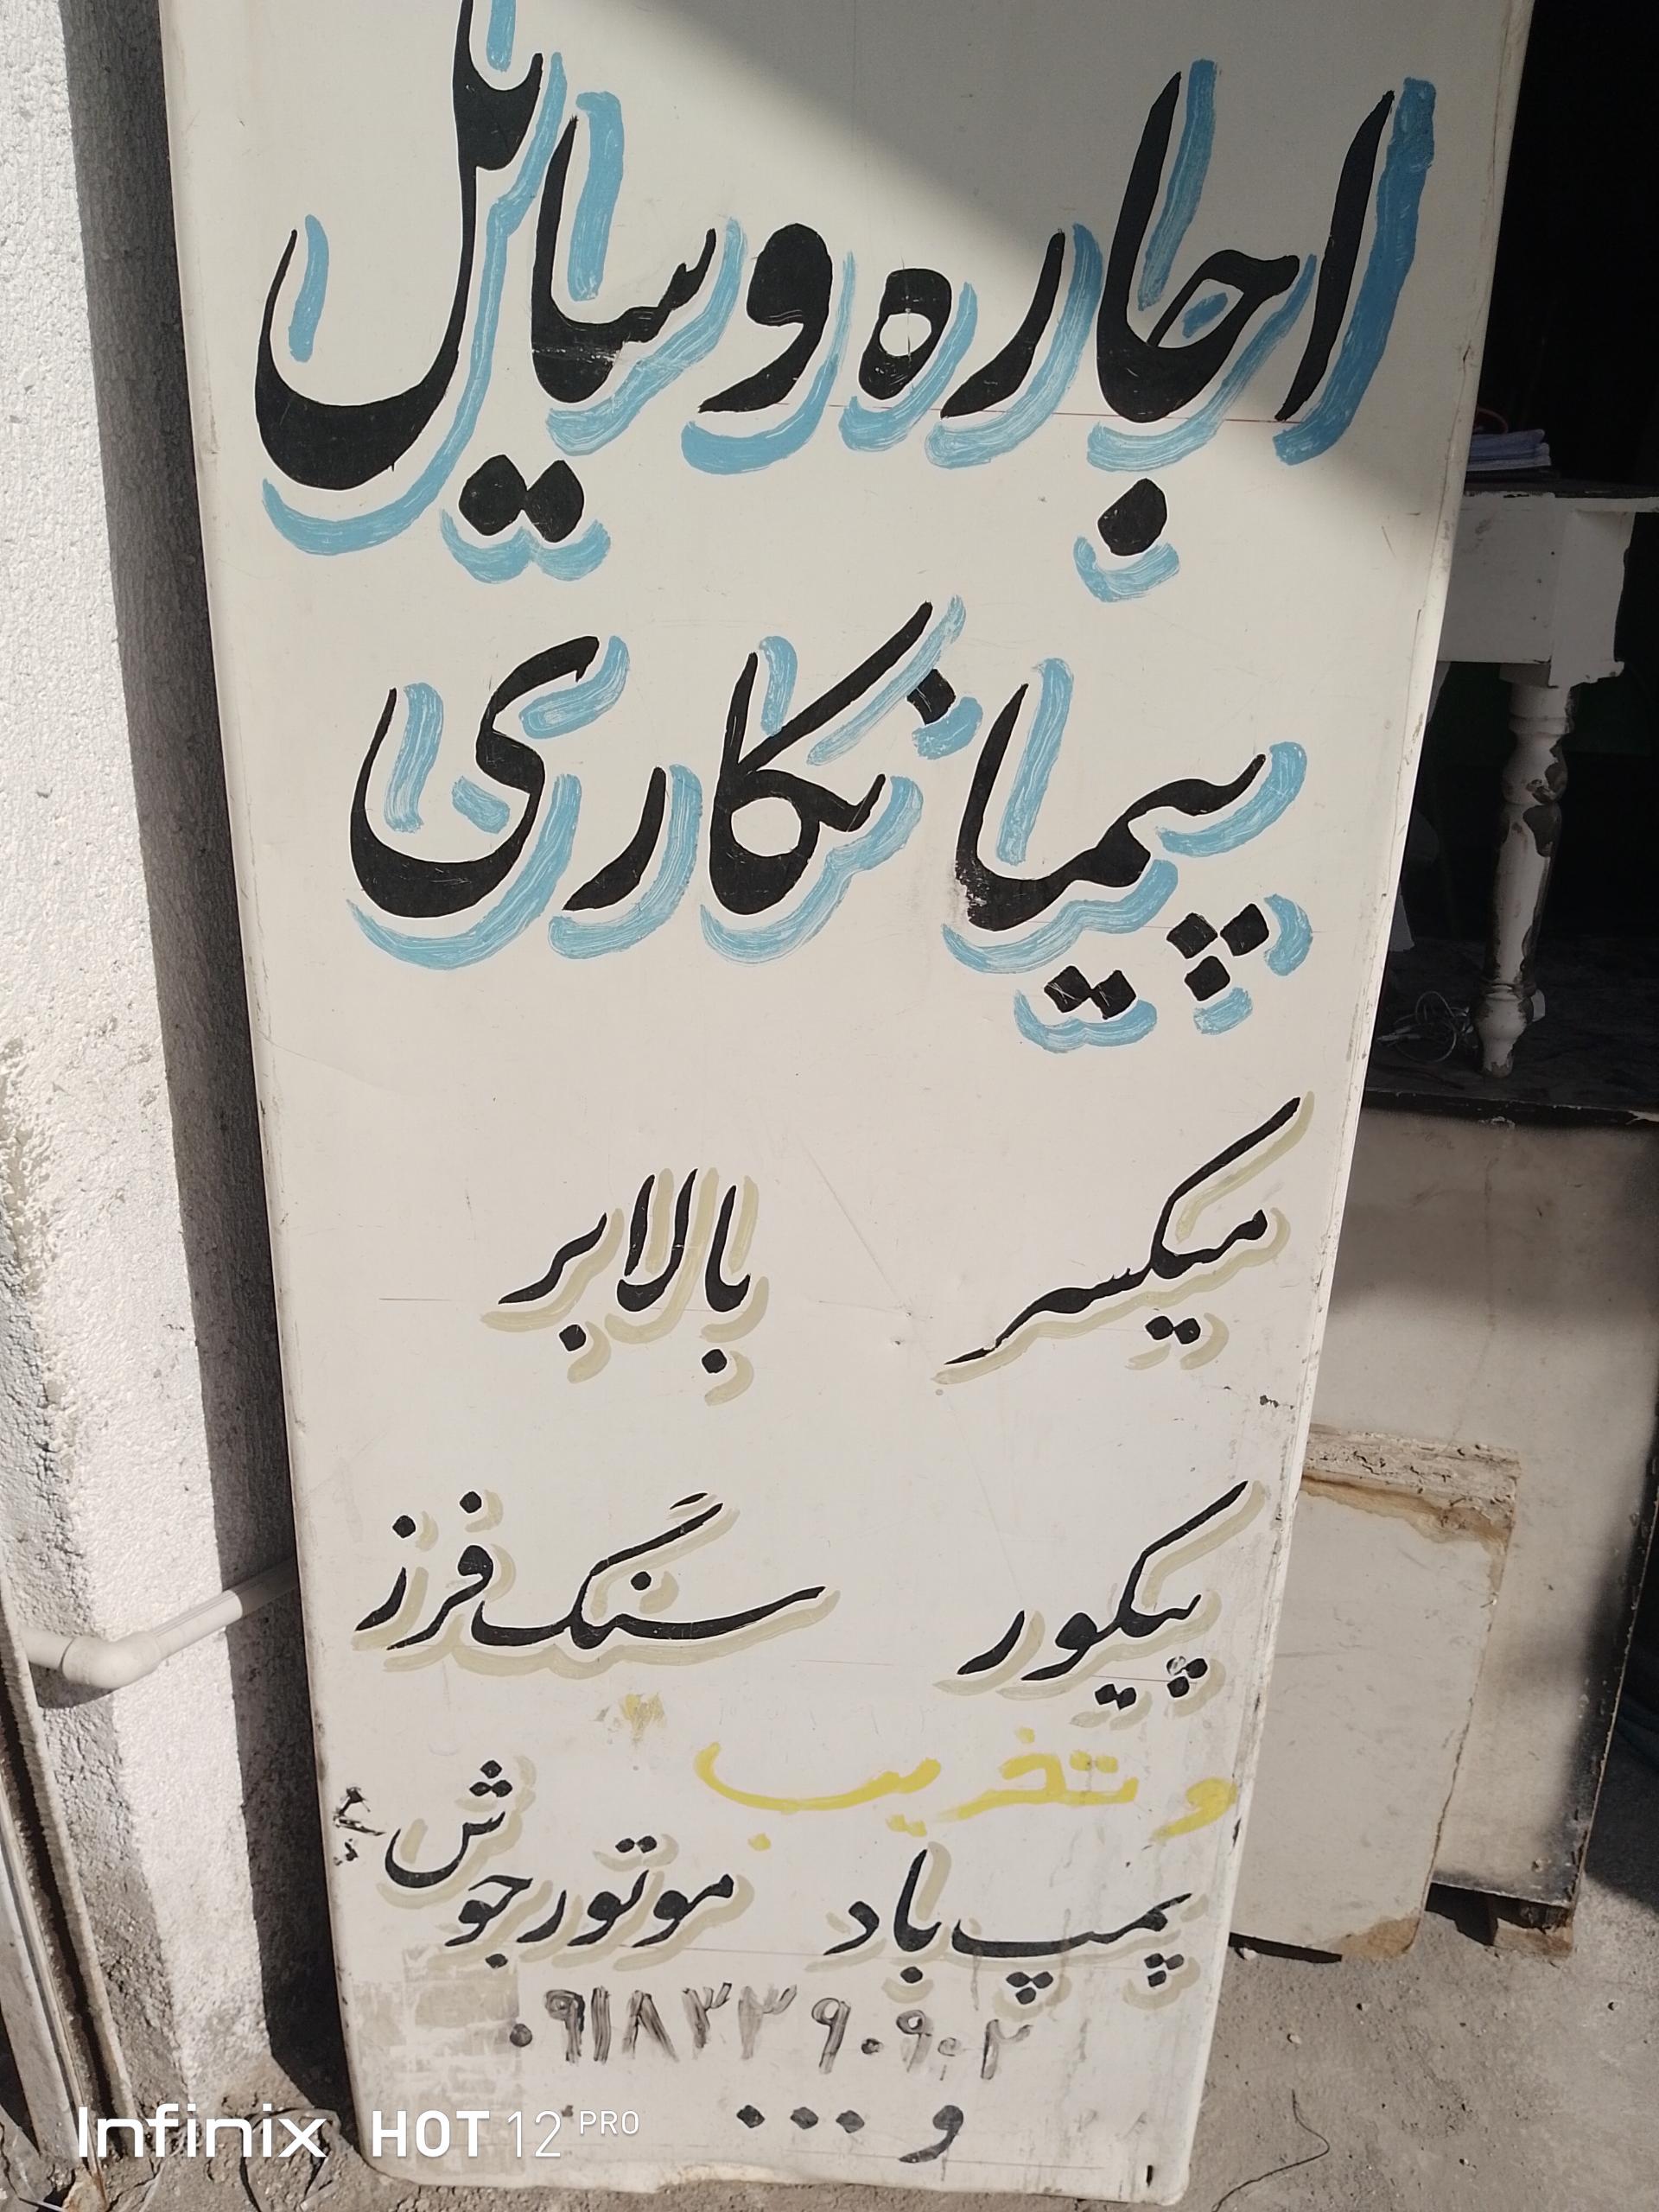 اجاره وسایل
پیمانکاری
میکسر بالابر
پیکور سنگ فرز
و تخریب
پمپ باد موتور جوش
۰۹۱۸۳۳۹۰۹۰۲
و ...
Infinix HOT 12 PRO